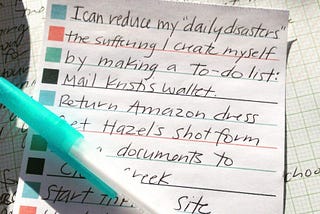 I can reduce my "daily disasters"
the suffering I create myself
by making a To-do list:
Mail Kristi's Wallet
Return Amazon dress
Get Hazel's shot form
documents to
Creek
Start
Site